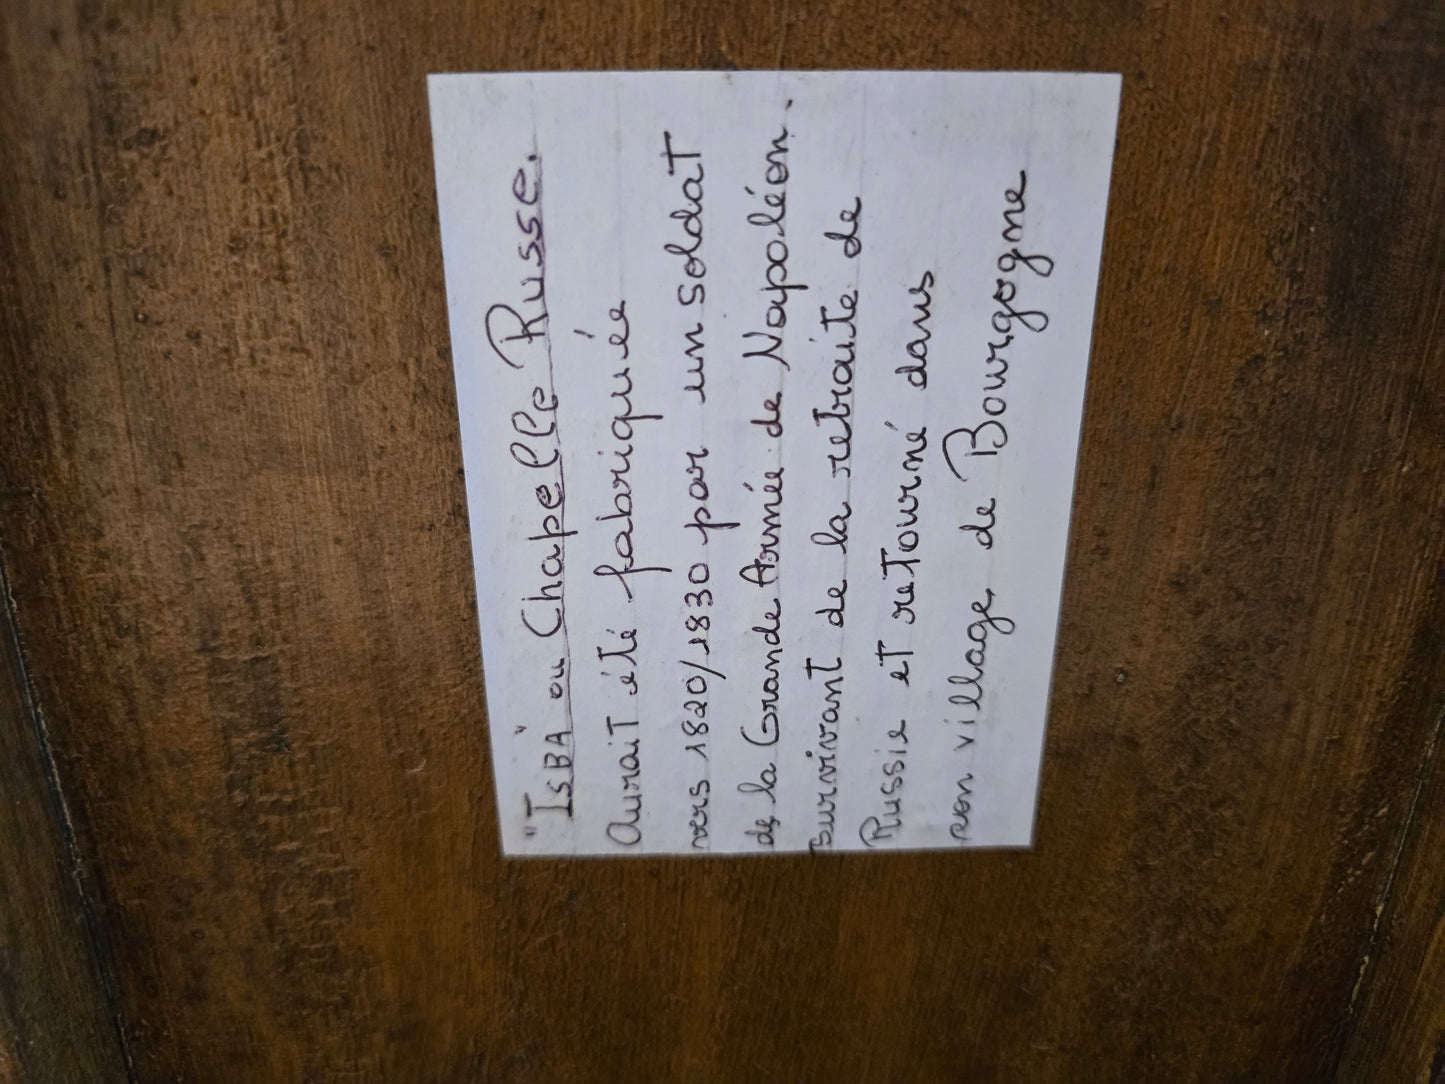 "ISBA" ou Chapelle Russe.
Aurait été fabriquée
vers 1820/1830 par un soldat
de la Grande Armée de Napoléon.
Survivant de la retraite de
Russie et retourné dans
son village de Bourgogne